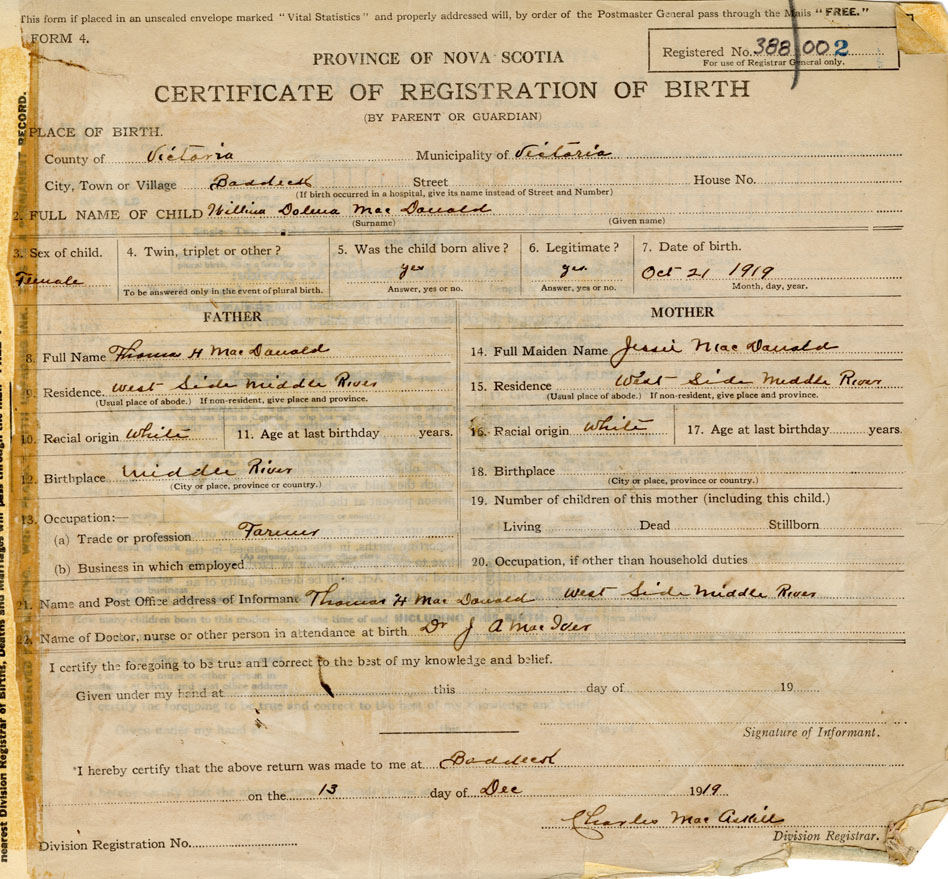 This form if placed in an unsealed envelope marked "Vital Statistics" and properly addressed will, by order of the Postmaster General pass through the Mails "FREE."
FORM 4.
Registered No. 388 002
For use of Registrar General only.
PROVINCE OF NOVA SCOTIA
CERTIFICATE OF REGISTRATION OF BIRTH
(BY PARENT OR GUARDIAN)
PLACE OF BIRTH.
County of Victoria Municipality of Victoria
City, Town or Village Baddeck Street House No.
(If birth occurred in a hospital, give its name instead of Street and Number)
2. FULL NAME OF CHILD Willina Dolena Mac Donald
(Surname) (Given name)
3. Sex of child. 4. Twin, triplet or other? 5. Was the child born alive? 6. Legitimate? 7. Date of birth.
Female yes yes. Oct 21 1919
To be answered only in the event of plural birth. Answer, yes or no. Answer, yes or no. Month, day, year.
FATHER MOTHER
8. Full Name Thomas H MacDonald 14. Full Maiden Name Jessie MacDonald
9. Residence. West Side Middle River 15. Residence West Side Middle River
(Usual place of abode.) If non-resident, give place and province. (Usual place of abode.) If non-resident, give place and province.
10. Racial origin White 11. Age at last birthday years. 16. Racial origin White 17. Age at last birthday years.
12. Birthplace Middle River 18. Birthplace
(City or place, province or country.) (City or place, province or country.)
19. Number of children of this mother (including this child.)
13. Occupation:—
Living Dead Stillborn
(a) Trade or profession Farmer
(b) Business in which employed 20. Occupation, if other than household duties
21. Name and Post Office address of Informant Thomas H MacDonald West Side Middle River
22. Name of Doctor, nurse or other person in attendance at birth Dr J A MacIver
I certify the foregoing to be true and correct to the best of my knowledge and belief.
Given under my hand at this day of 19
Signature of Informant.
I hereby certify that the above return was made to me at Baddeck
on the 13 day of Dec 1919
Charles MacAskill
Division Registrar.
Division Registration No.